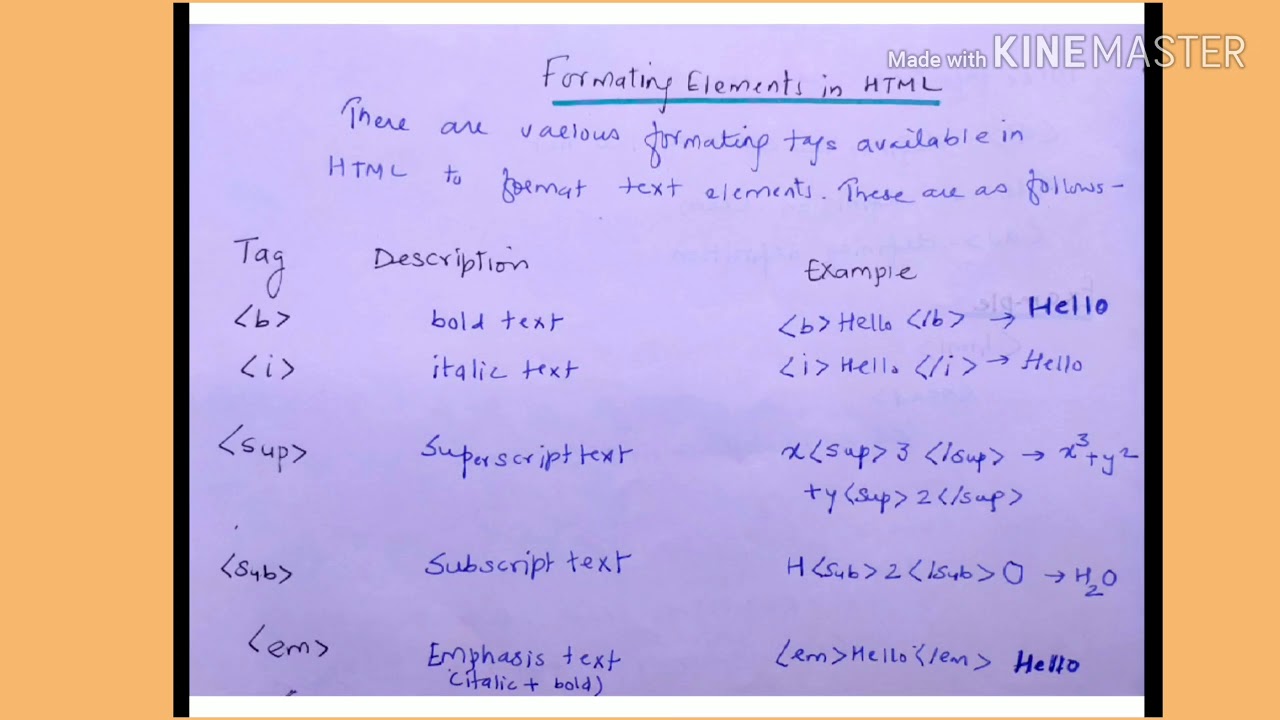 Made with KINEMASTER
Formating Elements in HTML
There are vaeious formating tags available in
HTML to format text elements. These are as follows-
Tag Description Example
<b> bold text <b>Hello </b> → Hello
<i> italic text <i>Hello </i> → Hello
<sup> Superscript text x<sup>3 </sup> → x³+y²
+y<sup>2</sup>
<sub> Subscript text H<sub>2</sub>O → H₂O
<em> Emphasis text <em>Hello</em> Hello
(italic + bold)